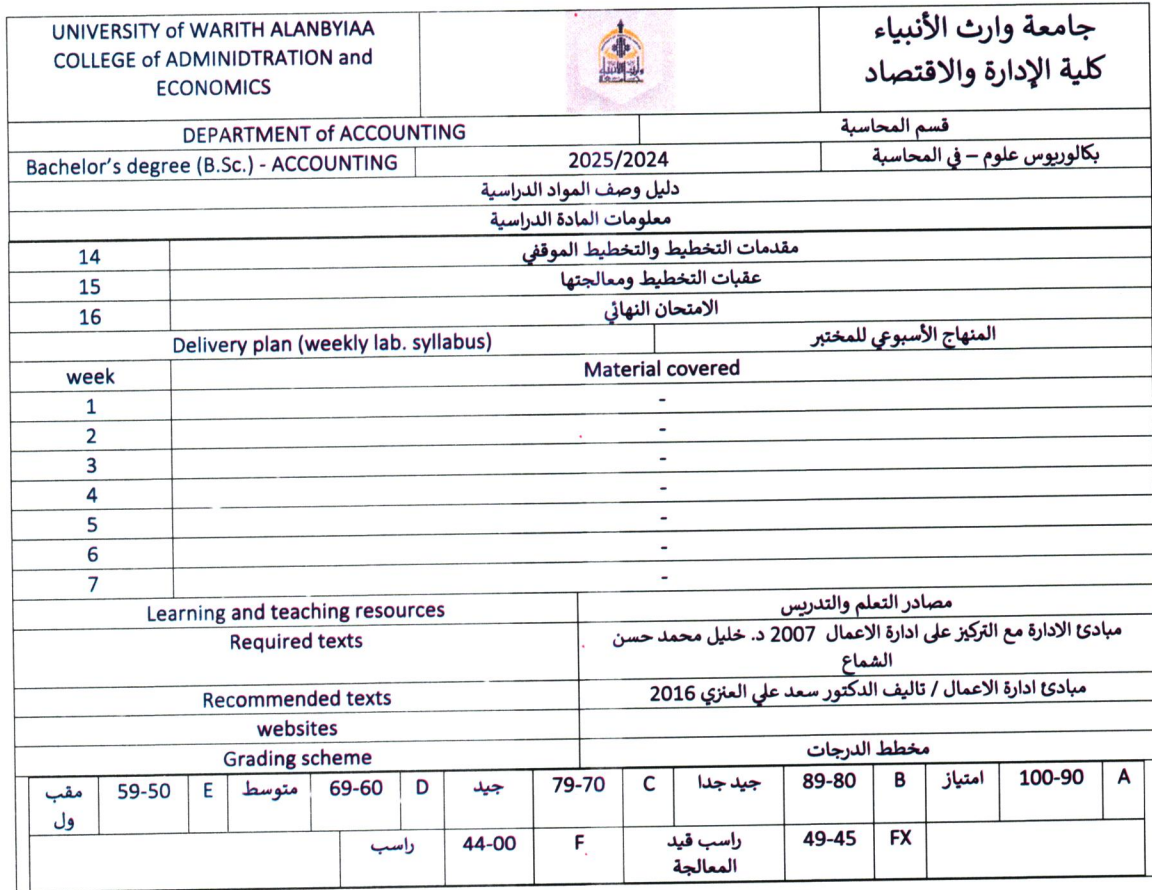 UNIVERSITY of WARITH ALANBYIAA
COLLEGE of ADMINIDTRATION and
ECONOMICS
جامعة وارث الأنبياء
كلية الإدارة والاقتصاد
DEPARTMENT of ACCOUNTING قسم المحاسبة
Bachelor's degree (B.Sc.) - ACCOUNTING 2025/2024 بكالوريوس علوم – في المحاسبة
دليل وصف المواد الدراسية
معلومات المادة الدراسية
14 مقدمات التخطيط والتخطيط الموقفي
15 عقبات التخطيط ومعالجتها
16 الامتحان النهائي
Delivery plan (weekly lab. syllabus) المنهاج الأسبوعي للمختبر
week Material covered
1 -
2 -
3 -
4 -
5 -
6 -
7 -
Learning and teaching resources مصادر التعلم والتدريس
Required texts مبادئ الادارة مع التركيز على ادارة الاعمال 2007 د. خليل محمد حسن
الشماع
Recommended texts مبادئ ادارة الاعمال / تاليف الدكتور سعد علي العنزي 2016
websites
Grading scheme مخطط الدرجات
A 100-90 امتياز B 89-80 جيد جدا C 79-70 جيد D 69-60 متوسط E 59-50 مقب
ول
FX 49-45 راسب قيد F 44-00 راسب
المعالجة